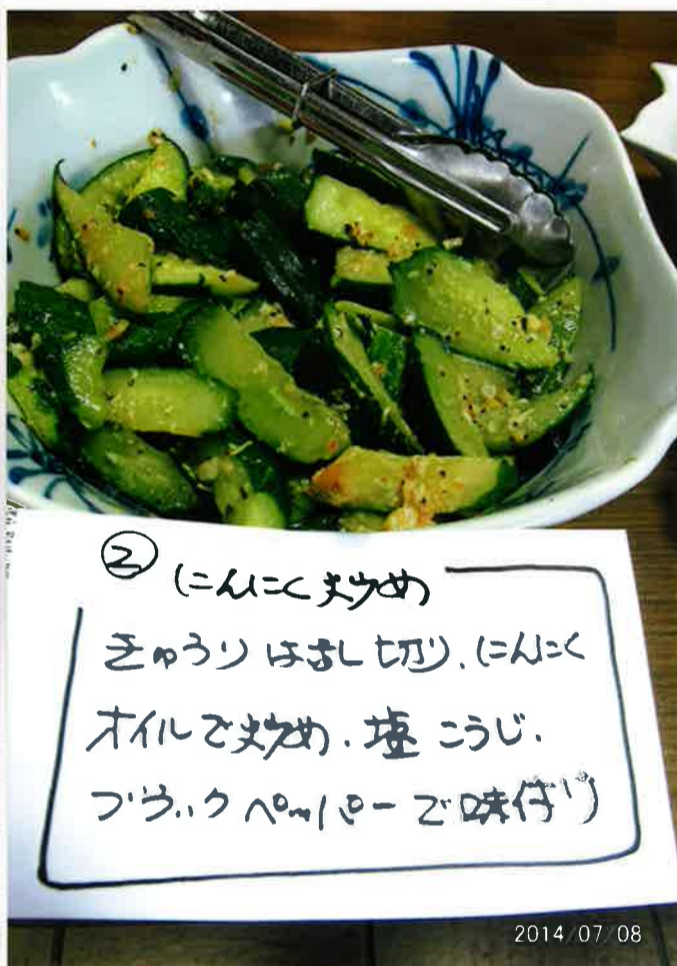 ② にんにく炒め
きゅうり 切り、にんにく
オイルで炒め、塩こうじ、
ブラックペッパーで味付け
2014/07/08